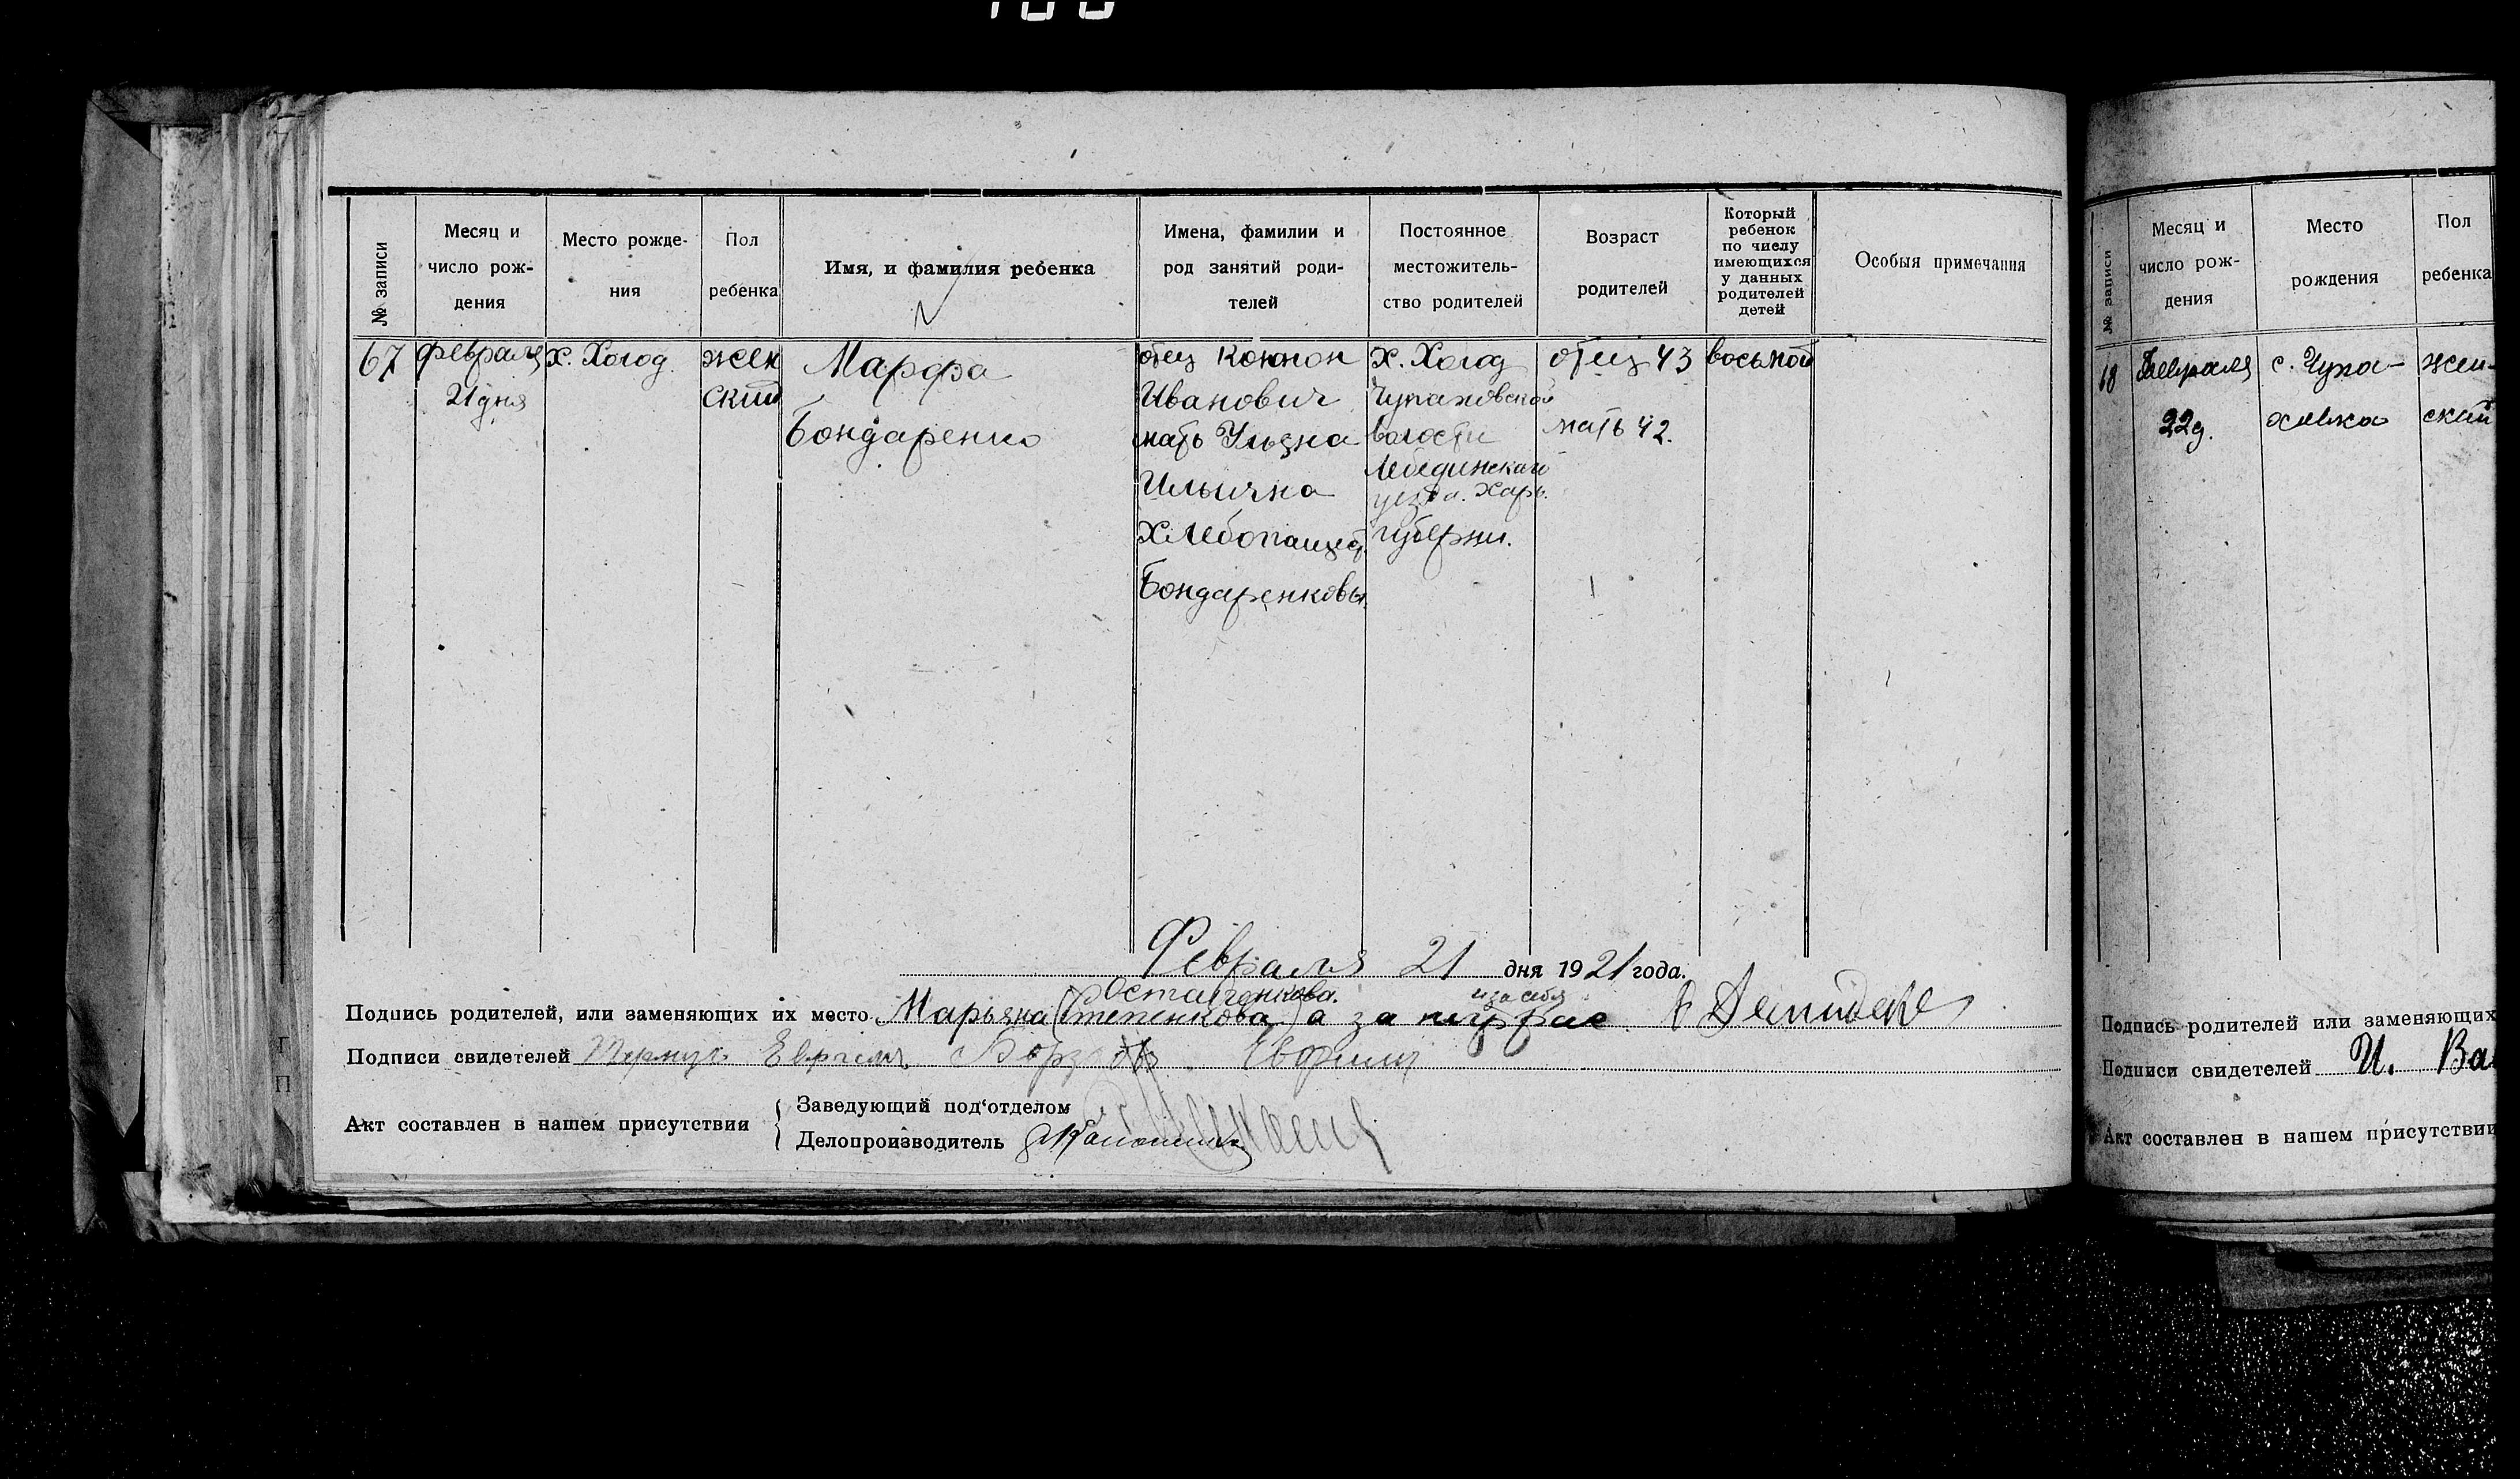 № записи
Месяц и число рож-
дения
Место рожде-
ния
Пол
ребенка
Имя, и фамилия ребенка
Имена, фамилии и
род занятий роди-
телей
Постоянное
местожитель-
ство родителей
Возраст
родителей
Который
ребенок
по числу
имеющихся
у данных
родителей
детей
Особыя примечания
67
февраля
21 дня
х. Холод
жен
ский
Марфа
Бондаренко
отец Коннон
Иванович
мать Ульяна
Ильична
Хлебопащец
Бондаренковы
х. Холод
Чупаховской
волости
Лебединскаго
уезда. Харь.
губерни.
отец 43
мать 42.
восьмой
Февраля 21 дня 1921 года.
Остапенкова.
и за себя
Подпись родителей, или заменяющих их место Марьяна (Степенкова) а за
Подписи свидетелей
Акт составлен в нашем присутствии
Заведующий под‘отделом
Делопроизводитель
№ записи
Месяц и
число рож-
дения
Место
рождения
Пол
ребенка
18
Февраля
22 д.
с. Чупа-
ховка
жен-
ский
Подпись родителей или заменяющих
Подписи свидетелей И. Ва
Акт составлен в нашем присутствии